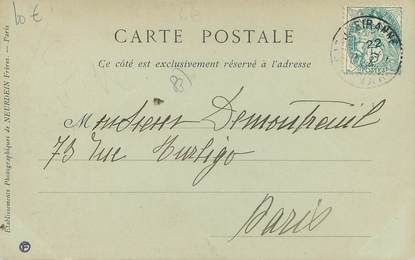 10 €
CARTE POSTALE
Ce côté est exclusivement réservé à l'adresse
83
Monsieur Demontreuil
73 rue Turbigo
Paris
Etablissements Photographiques de NEURDEIN Frères. — Paris
EIRANNE
22